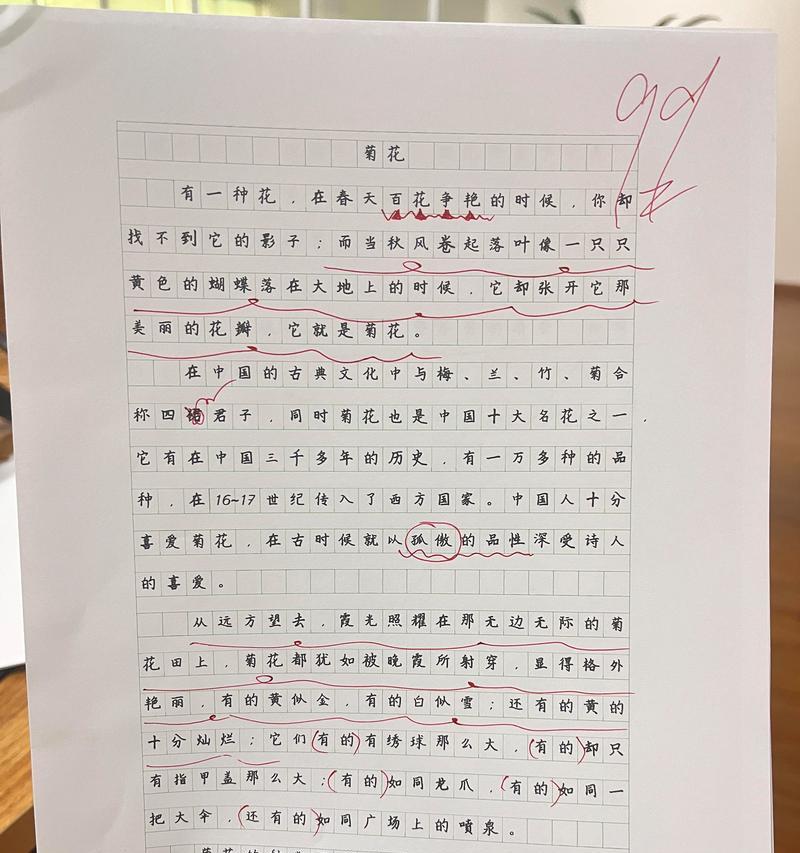 99
菊花
有一种花，在春天百花争艳的时候，你却
找不到它的影子；而当秋风卷起落叶像一只只
黄色的蝴蝶落在大地上的时候，它却张开它那
美丽的花瓣，它就是菊花。
在中国的古典文化中与梅、兰、竹、菊合
称四君子，同时菊花也是中国十大名花之一，
它有在中国三千多年的历史，有一万多种的品
种，在16~17世纪传入了西方国家。中国人十分
喜爱菊花，在古时候就以孤傲的品性深受诗人
的喜爱。
从远方望去，霞光照耀在那无边无际的菊
花田上，菊花都犹如被晚霞所射穿，显得格外
艳丽，有的黄似金，有的白似雪；还有的黄的
十分灿烂；它们(有的)有绣球那么大，(有的)却只
有指甲盖那么大；(有的)如同龙爪，(有的)如同一
把大伞，(还有的)如同广场上的喷泉。